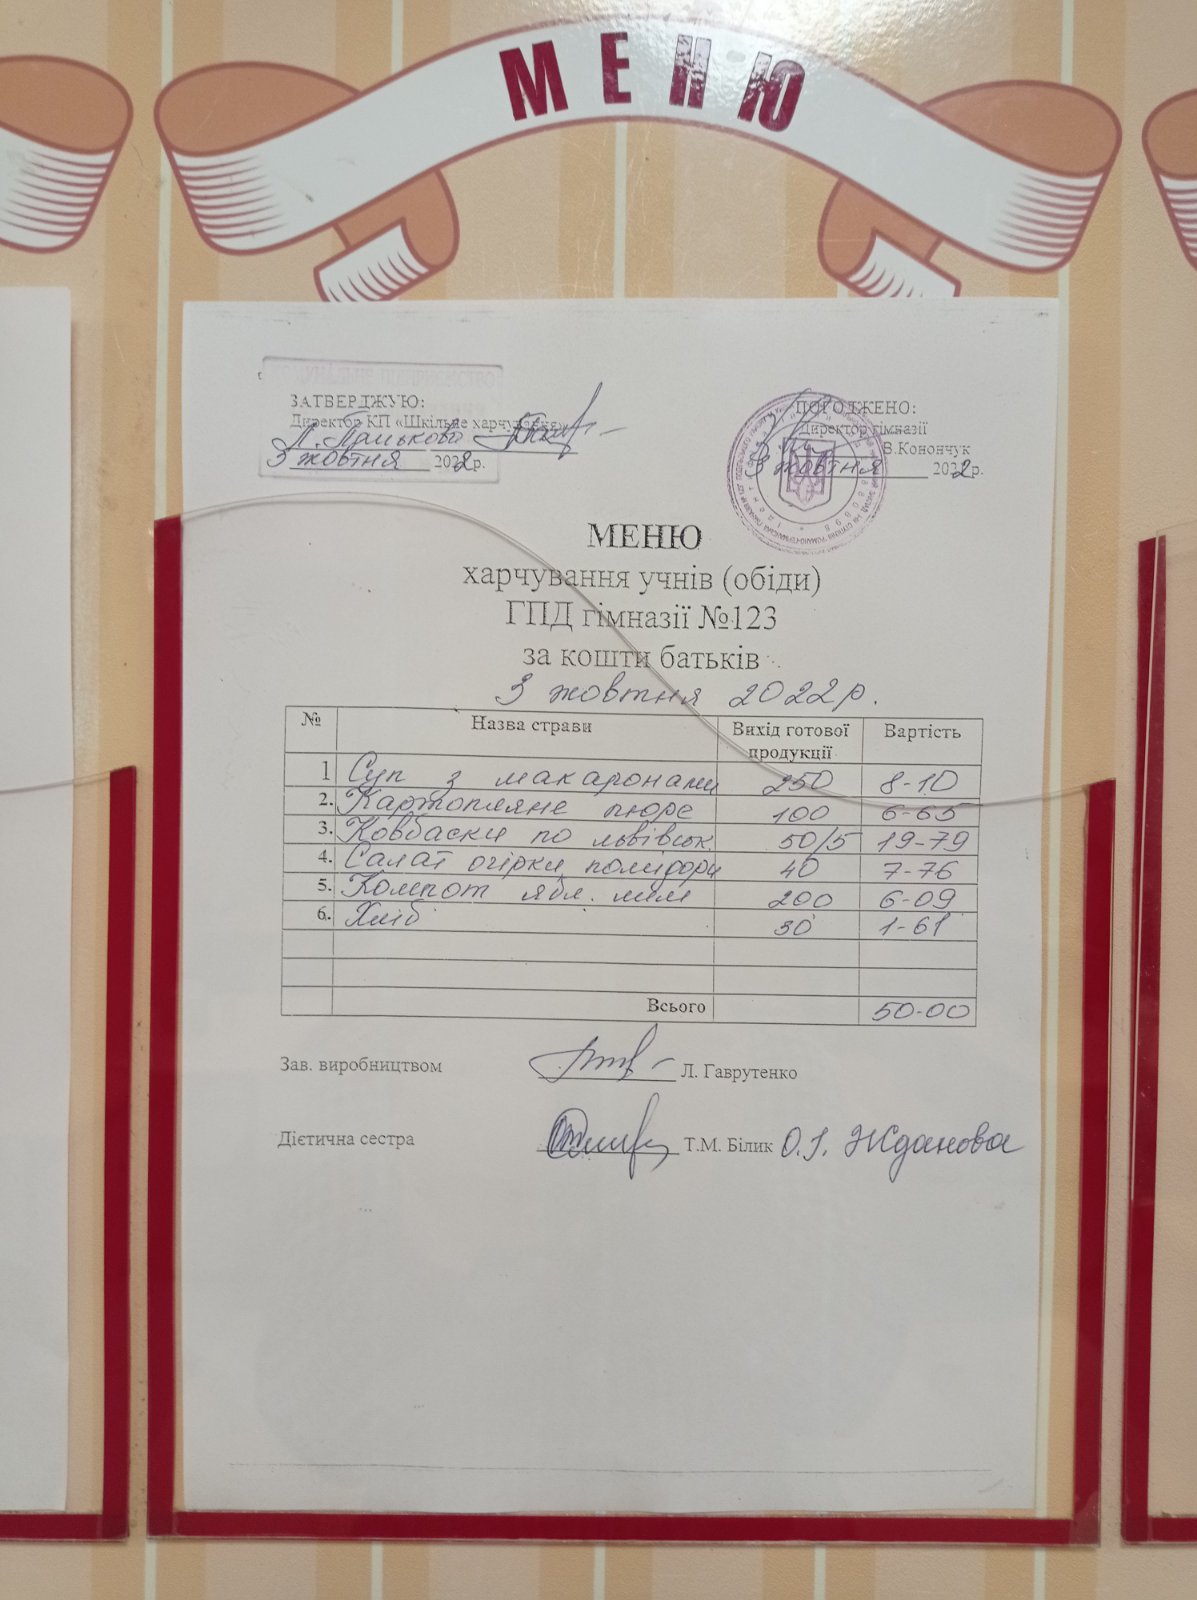 МЕНЮ
ЗАТВЕРДЖУЮ:
Директор КП «Шкільне харчування»
3 жовтня 2022р.
ПОГОДЖЕНО:
Директор гімназії
В.Конончук
3 жовтня 2022р.
МЕНЮ
харчування учнів (обіди)
ГПД гімназії №123
за кошти батьків
3 жовтня 2022р.
№ Назва страви Вихід готової продукції Вартість
1 Суп з макаронами 250 8-10
2. Картопляне пюре 100 6-65
3. Ковбаски по львівськ. 50/5 19-79
4. Салат огірки помідори 40 7-76
5. Компот ябл. лим 200 6-09
6. Хліб 30 1-61
Всього 50-00
Зав. виробництвом Л. Гаврутенко
Дієтична сестра Т.М. Білик О.І. Жданова